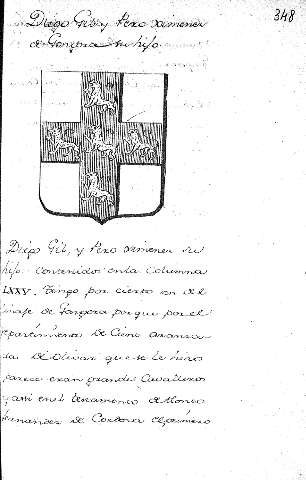 348
Diego Gil, y Pero Ximenez
de Gongora su hijo.
Diego Gil, y Pero Ximenez su
hijo. Contenidos en la Columna
LXXV. tengo por cierto son del
linaje de Gongora porque por el
repartimiento de Cien Aranza-
das de Olivar que se le hizo
parece eran grandes Cavalleros
y assi en el testamento de Alonso
fernandez de Cordova el primero